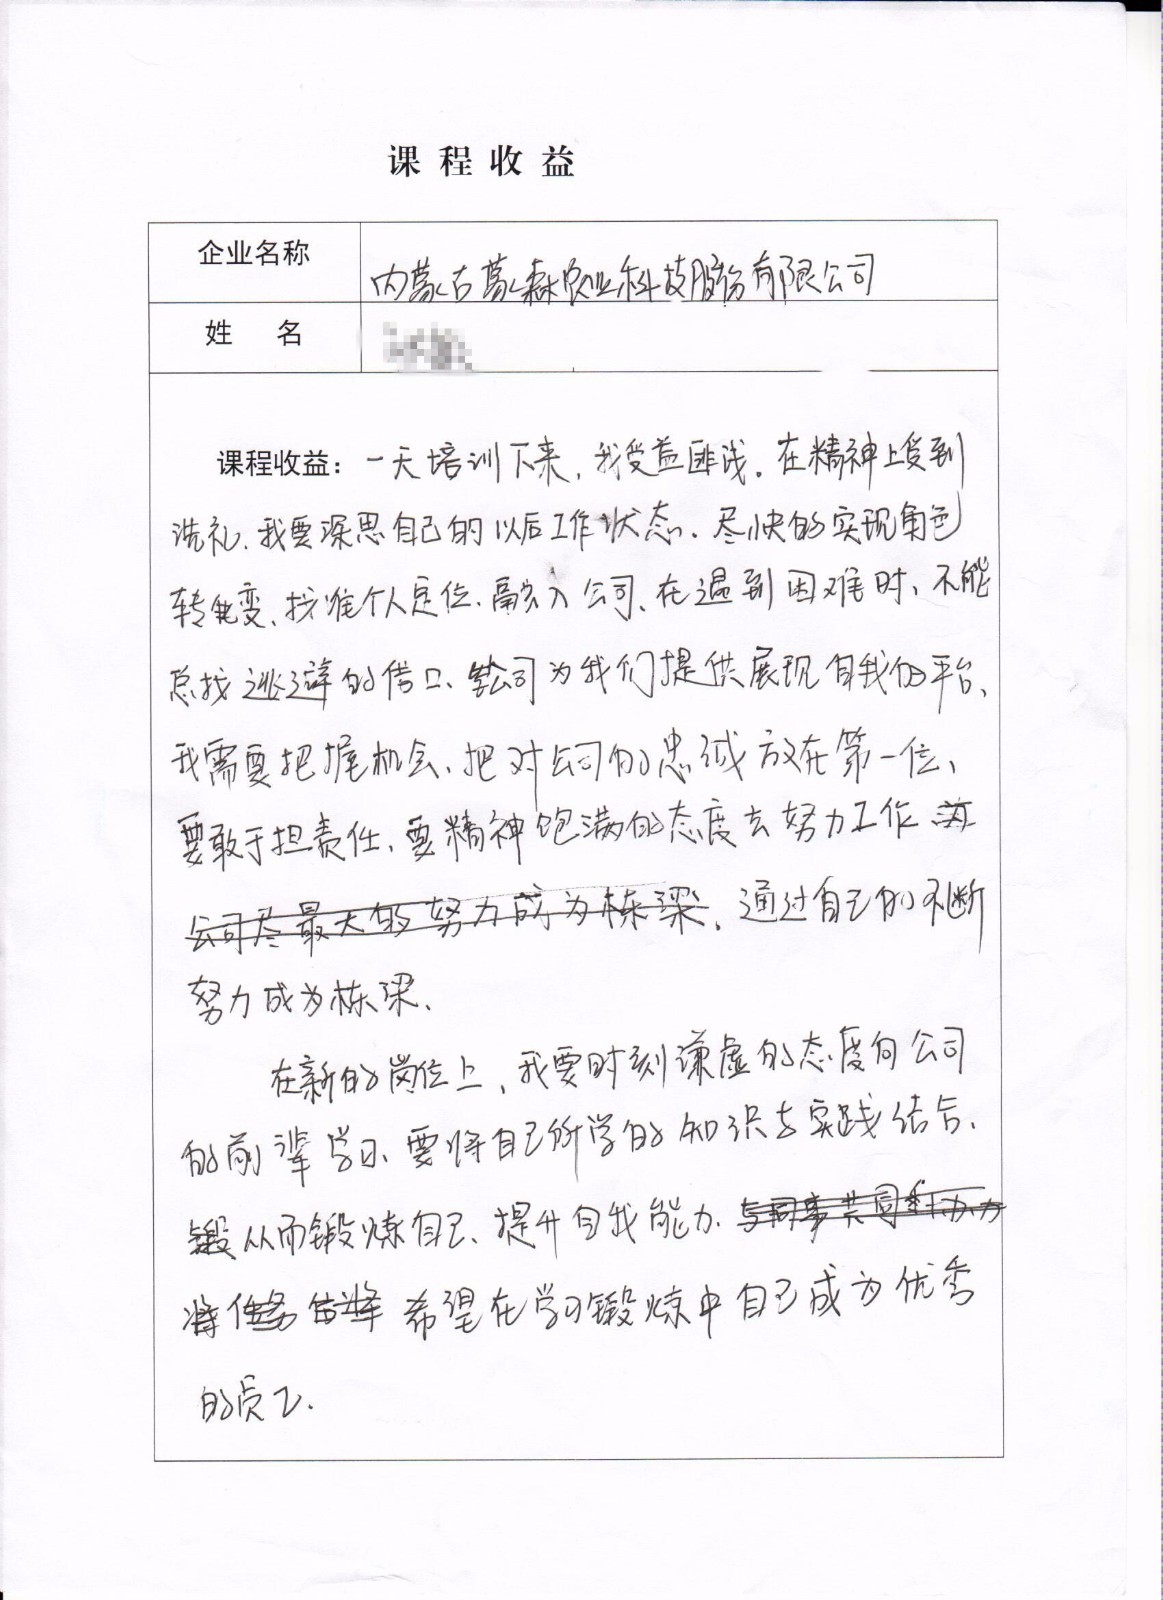 课程收益
企业名称 内蒙古蒙森农业科技股份有限公司
姓 名
课程收益：一天培训下来，我受益匪浅。在精神上受到
洗礼、我要深思自己的以后工作状态、尽快的实现角色
转变、找准个人定位、融入公司、在遇到困难时、不能
总找逃避的借口、公司为我们提供展现自我的平台、
我需要把握机会、把对公司的忠诚放在第一位、
要敢于担责任、要精神饱满的态度去努力工作
公司尽最大的努力成为栋梁，通过自己的不断
努力成为栋梁、
在新的岗位上，我要时刻谦虚的态度向公司
的前辈学习、要将自己所学的知识与实践结合、
锻从而锻炼自己、提升自我能力、与同事共同
将任务 希望在学习锻炼中自己成为优秀
的员工.